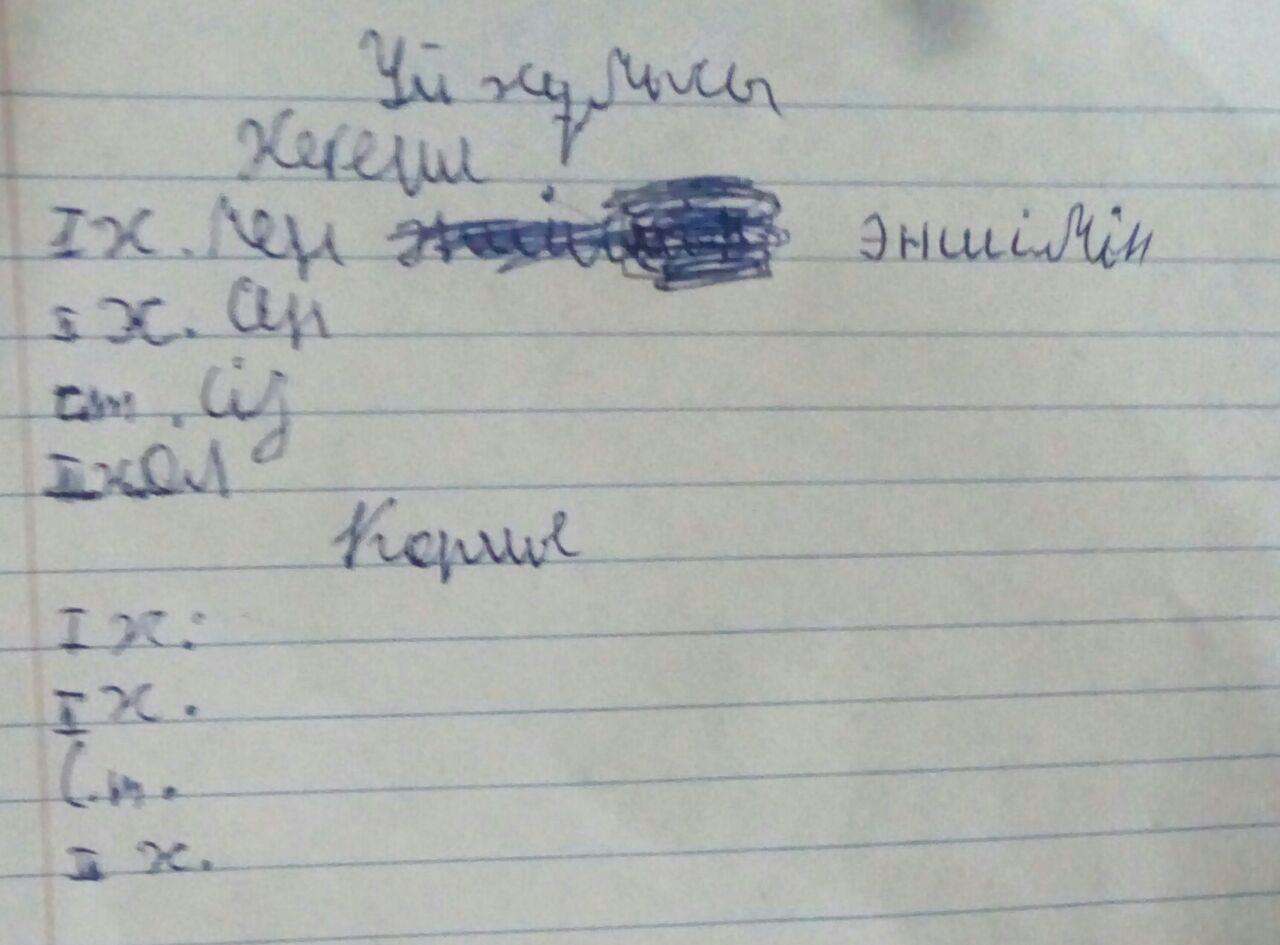 Үй жұмысы
Жекеше
I ж. Мен әншімін
II ж. Сен
С.т. Сіз
III ж Ол
Көпше
I ж.
II ж.
С.т.
III ж.